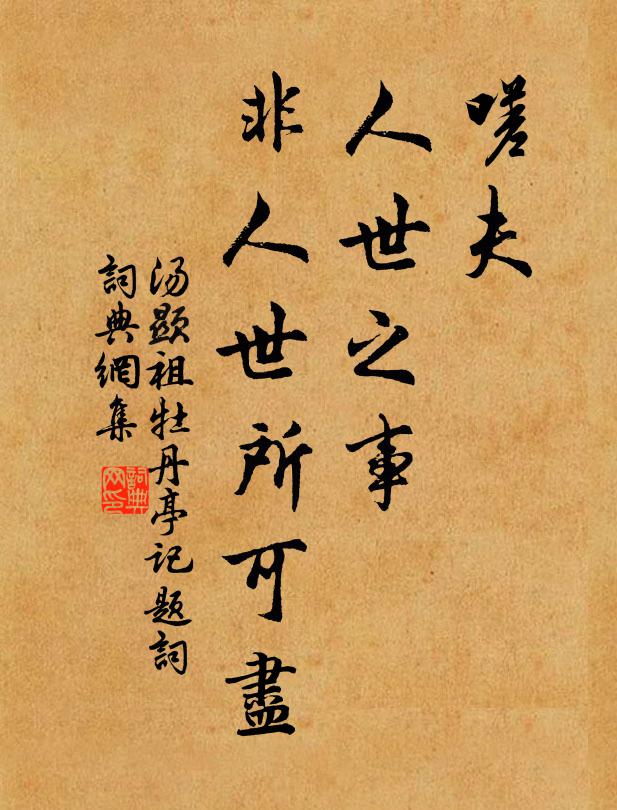 嗟夫
人世之事
非人世所可盡
汤顯祖牡丹亭记题詞
詞典網集
詞典网印